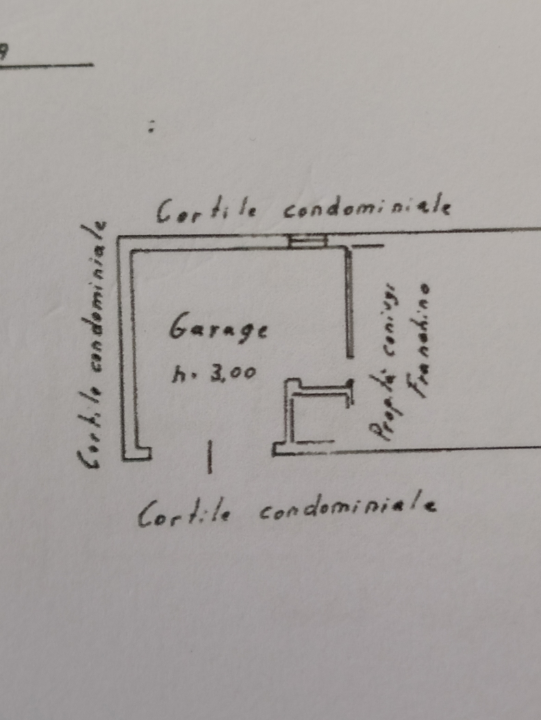 9
Cortile condominiale
Cortile condominiale
Garage
h. 3,00
Proptà coniugi
Franchino
Cortile condominiale